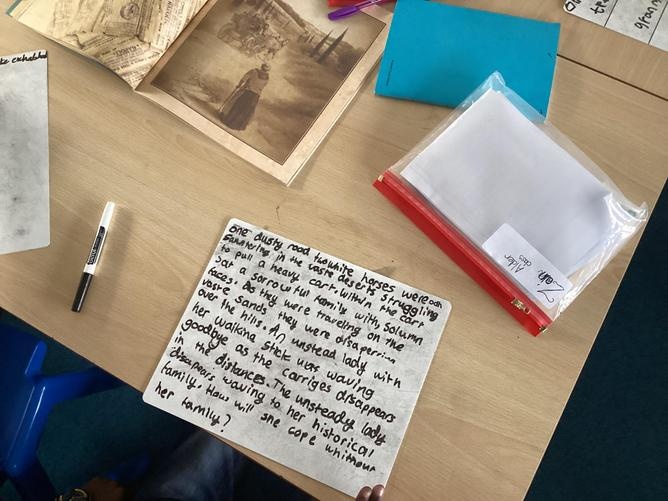 ke exhatbed
gramm
Alder
class
Zain
one dusty road two white horses were on
Sauntering in the vaste deserts struggling
to pull a heavy cart. within the cart
Sat a sorrowful family with solumn
faces. As they were traveling on the
vaste sands they were disaperring
over the hills. An unstead lady with
her walking stick was waving
goodbye as the carriges disappears
in the distances. The unsteady lady
disapears waving to her historical
family. How will she cope whithour
her family?